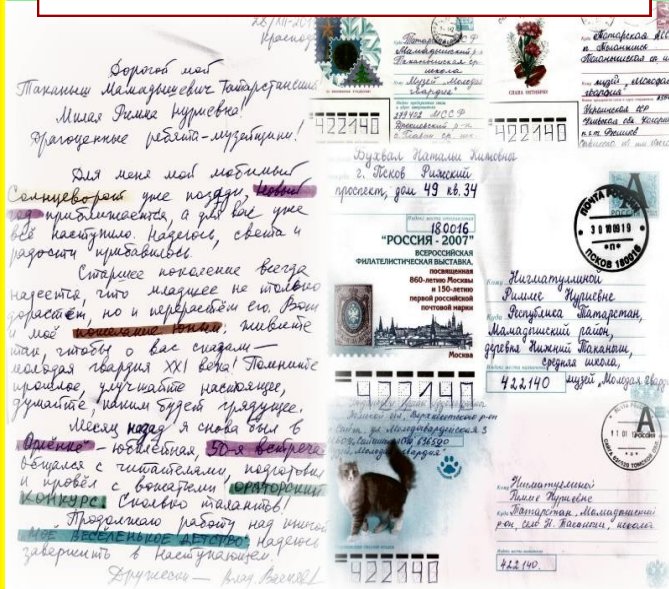 26/XII-20
Краснод
Дорогой мой
Таканыш Мамадышевич Татарстанский
Милая Римма Нуриевна,
Драгоценные ребята-музейщики!
Для меня мой любимый
Солнцеворот уже позади. Новый
год приближается, а для вас уже
всё наступило. Надеюсь, света и
радости прибавилось.
Старшее поколение всегда
надеется, что младшее не только
дорастёт, но и перерастёт его. Вот
и моё пожелание юным: живите
так, чтобы о вас сказали —
молодая гвардия XXI века! Помните
прошлое, улучшайте настоящее,
думайте, каким будет грядущее.
Месяц назад я снова был в
Орлёнке" – юбилейная, 50-я встреча
Общался с читателями, подготовил
и провёл с вожатыми ораторский
конкурс. Сколько талантов!
Продолжаю работу над книгой
"Моё веселенькое детство", надеюсь
завершить в наступающем!
Дружески — Влад.
Татарская ССР
Мамадышский р-н
школа
Музей "Молодая
гвардия"
422140
СЛАВА
Татарская АССР
музей "Молодая
гвардия"
422140
Бухвал Наталии Китовны
г. Псков Рижский
проспект, дом 49 кв. 34
180016
"РОССИЯ - 2007"
ВСЕРОССИЙСКАЯ
ФИЛАТЕЛИСТИЧЕСКАЯ ВЫСТАВКА,
посвященная
860-летию Москвы
и 150-летию
первой российской
почтовой марки
Москва
422140
А
РОССИЯ
ПОЧТА РОССИИ
30 10 09 19
ПСКОВ 180016
Кому Нигматуллиной
Римме Нуриевне
Куда Республика Татарстан,
Мамадышский район,
деревня Нижний Таканыш,
средняя школа,
422140 музей "Молодая гвард
ул. Молодогвардейская 3
636500
422140
РОССИЯ
Кому Нигматуллиной
Римме Нуриевне
Куда Татарстан, Мамадышский
р-он, село Н. Таканыш, школа
422140